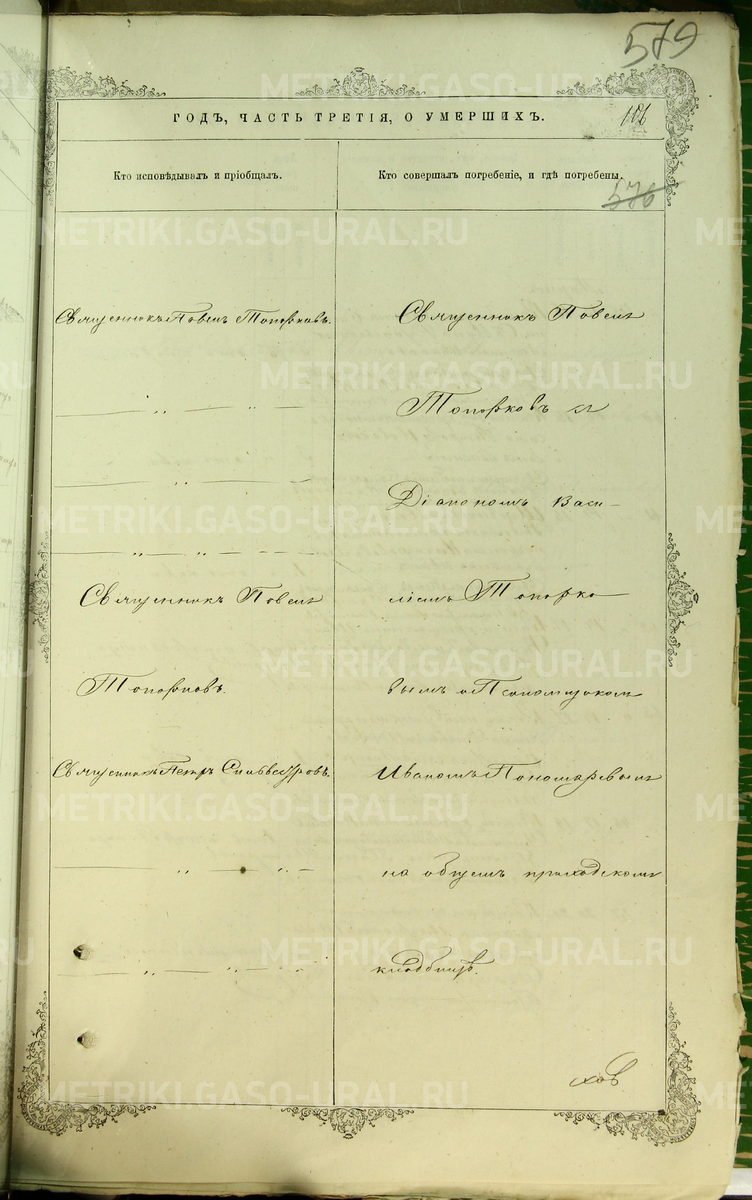 579
ГОДЪ, ЧАСТЬ ТРЕТІЯ, О УМЕРШИХЪ.
106
Кто исповѣдывалъ и пріобщалъ.
Кто совершалъ погребеніе, и гдѣ погребены.
576
Священникъ Павелъ Топорковъ.
— „ — „ —
— „ —
— „ — „ —
Священникъ Павелъ
Топорковъ.
Священникъ Петръ Сильвестровъ.
— „ — „ —
— „ — „ —
Священникъ Павелъ
Топорковъ съ
Діакономъ Васи-
ліемъ Топорко
вымъ и Псаломщиком
Иваномъ Пономаревымъ
на общемъ приходскомъ
кладбищѣ.
METRIKI.GASO-URAL.RU